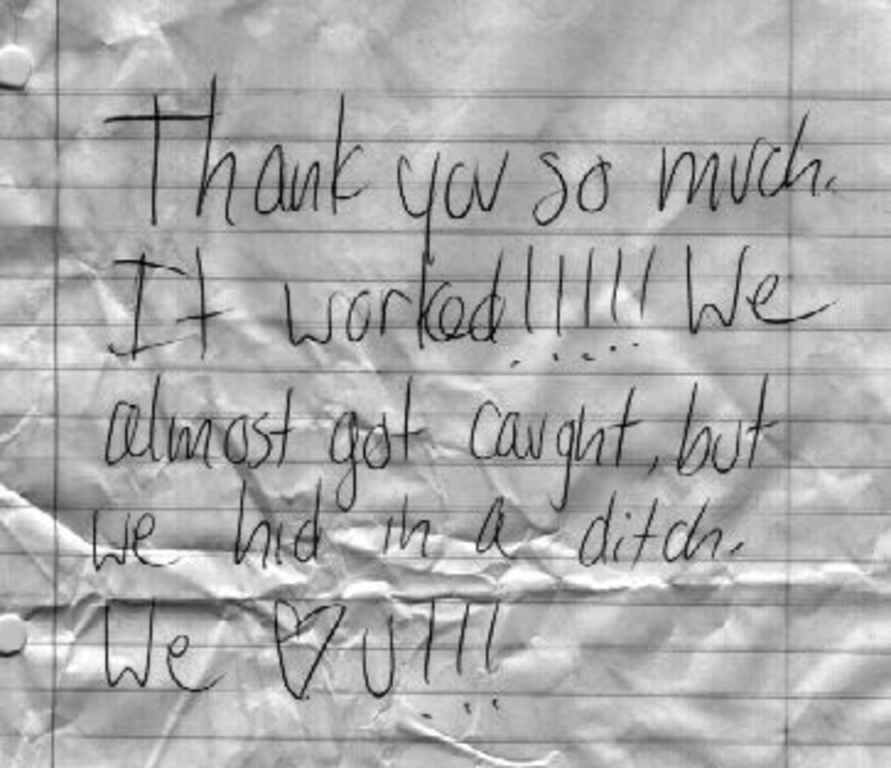 Thank you so much.
It worked!!!!! We
almost got caught, but
we hid in a ditch.
We ♡ U!!!